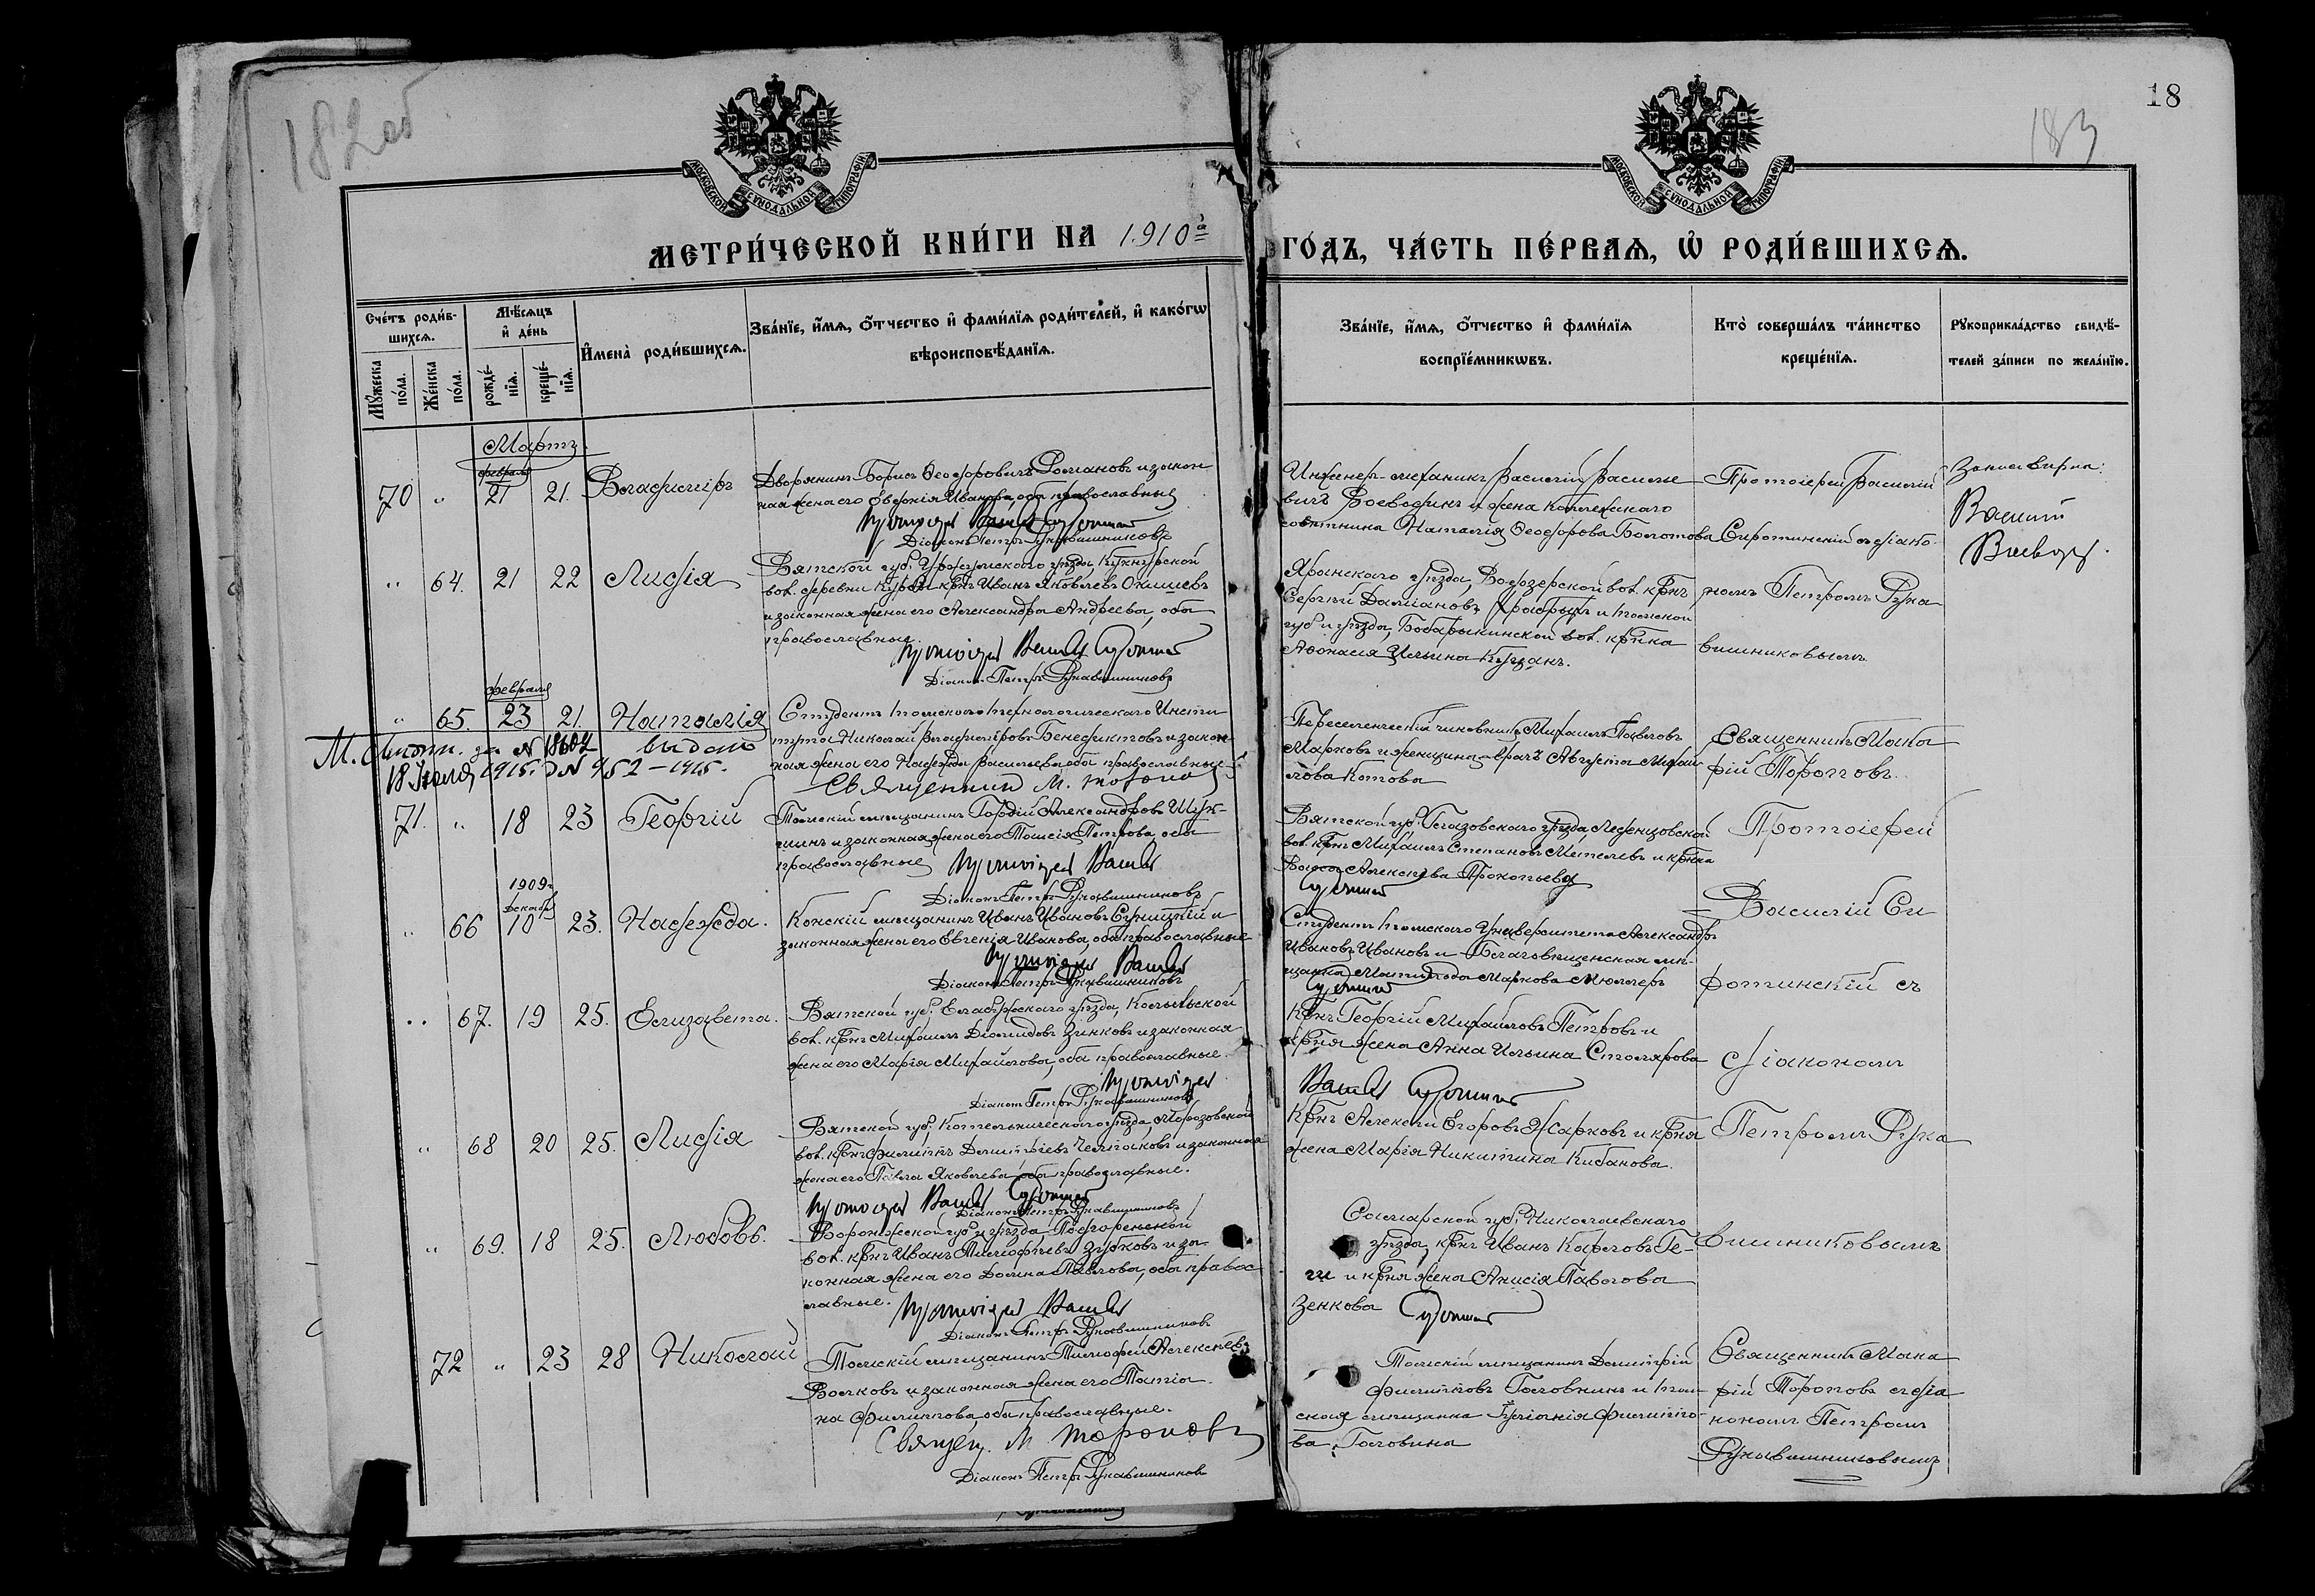 182об
183
18
МОСКОВСКОЙ СѴНОДАЛЬНОЙ ТИПОГРАФІИ
МОСКОВСКОЙ СѴНОДАЛЬНОЙ ТИПОГРАФІИ
МЕТРИ́ЧЕСКОЙ КНИ́ГИ НА 1910й
ГО́ДЪ, ЧА́СТЬ ПЕ́РВАѦ, Ѡ҆ РОДИ́ВШИХСѦ.
Сче́тъ роди́в-
шихсѧ.
Мꙋ́жеска по́ла.
Же́нска по́ла.
Мѣ́сѧцъ
и҆ де́нь
рожде́-нїѧ.
креще́-нїѧ.
И҆мена̀ роди́вшихсѧ.
Зва́нїе, и҆́мѧ, ѻ҆́тчество и҆ фами́лїѧ роди́телей, и҆ како́гѡ
вѣроисповѣ́данїѧ.
Зва́нїе, и҆́мѧ, ѻ҆́тчество и҆ фами́лїѧ
воспрїе́мникѡвъ.
Кто̀ соверша́лъ та́инство
креще́нїѧ.
Рꙋкоприкла́дство свидѣ́-
телей за́писи по жела́нїю.
Мартъ
февраля
70 " 21 21. Владиміръ
Дворянинъ Борисъ Ѳеодоровичъ Романовъ и закон
ная жена его Евгенія Иванова, оба православные
Протоіерей Василій Сиротинскій
Діаконъ Петръ Рукавишниковъ
Инженеръ-механикъ Василій Василье
вичъ Воеводинъ и жена Коллежскаго
совѣтника Наталія Ѳеодорова Болотова
Протоіерей Василій
Сиротинскій съ діако-
" 64. 21 22 Лидія
Вятской губ. Уржумскаго уѣзда
вол. деревни крн. Иванъ Яковлевъ Окишевъ
и законная жена его Александра Андреева, оба
православные.
Протоіерей Василій Сиротинскій
Діаконъ Петръ Рукавишниковъ
Яранскаго уѣзда, вол. крнъ
Сергѣй Даміановъ и Томской
губ. и уѣзда, Бобарыкинской вол. крнка
Аѳонасія Ильина
номъ Петромъ Рука
вишниковымъ
февраля
" 65. 23 21. Наталія
Студентъ Томскаго Технологическаго Инсти
тута Николай Владиміровъ Бенедиктовъ и закон-
ная жена его Надежда Васильева, оба православные
Священник М. Торопов
М. выпи. за № 18604 выдано
18 Іюля 1915. № 952-1915.
Переселенческій чиновникъ Михаилъ Павловъ
Марковъ и женщина-врачъ Августа Михай
лова Котова
Священникъ Мака
рій Тороповъ
71. " 18 23 Георгій
Томскій мѣщанинъ Гордій Александровъ
и законная жена его Таисія Петрова, оба
православные Протоіерей Василій
Діаконъ Петръ Рукавишниковъ
Вятской губ. Глазовскаго уѣзда,
вол. крнъ Михаилъ Степановъ Метелевъ и крнка
Алексѣева Прокопьева
Сиротинскій
Протоіерей
Василій Си
1909г.
декабря
" 66 10 23. Надежда.
мѣщанинъ Иванъ Ивановъ и
законная жена его Евгенія Иванова, оба православные
Протоіерей Василій
Діаконъ Петръ Рукавишниковъ
Студентъ Томскаго Университета Александръ
Ивановъ Ивановъ и Благовѣщенская мѣ-
щанка Матильда Маркова Мюллеръ
Сиротинскій
ротинскій съ
" 67. 19 25. Елизавета.
Вятской губ. Елабужскаго уѣзда,
вол. крнъ Михаилъ Діомидовъ Зинковъ и законная
жена его Марія Михайлова, оба православные.
Протоіерей
Діаконъ Петръ Рукавишниковъ
Крнъ Георгій Михайловъ Петровъ и
крння жена Анна Ильина Столярова
Василій Сиротинскій
діакономъ
" 68 20 25. Лидія
Вятской губ. Котельническаго уѣзда, Морозовской
вол. крнъ Филиппъ Димитріевъ и законная
жена его Павла Яковлева, оба православные.
Протоіерей Василій Сиротинскій
Діаконъ Петръ Рукавишниковъ
Крнъ Алексѣй Егоровъ Жарковъ и крння
жена Марія Никитина Кибанова.
Петромъ Рука
" 69. 18 25. Любовь.
Воронежской губ. и уѣзда, Подгоренской
вол. крнъ Иванъ Тимофѣевъ Зубковъ и за
конная жена его Домна Павлова, оба правос
лавные. Протоіерей Василій
Діаконъ Петръ Рукавишниковъ
Самарской губ. Николаевскаго
уѣзда, крнъ Иванъ Карловъ Ге-
и крння жена Анисія Павлова
Зенкова Сиротинскій
вишниковымъ
72 " 23 28 Николай
Томскій мѣщанинъ Тимофей Алексѣевъ
Волковъ и законная жена его Татіа-
на Филиппова, оба православные.
Священ. М. Тороповъ
Діаконъ Петръ Рукавишниковъ
Томскій мѣщанинъ Димитрій
Филипповъ Головинъ и Том
ская мѣщанка Іуліанія Филиппо
ва Головина
Священникъ Мака
рій Тороповъ съ діа
кономъ Петромъ
Рукавишниковымъ